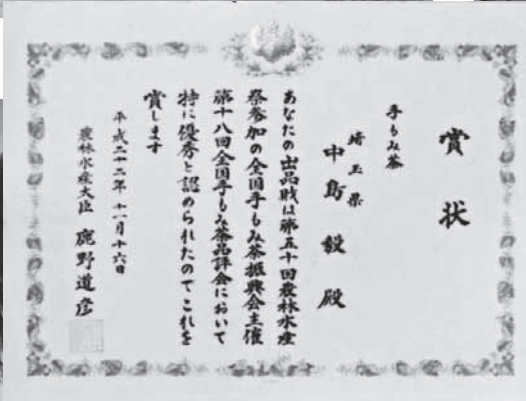 賞状
手もみ茶
埼玉県
中島毅殿
あなたの出品財は第五十回農林水産
祭参加の全国手もみ茶振興会主催
第十八回全国手もみ茶品評会において
特に優秀と認められたのでこれを
賞します
平成二十二年十一月十六日
農林水産大臣 鹿野道彦